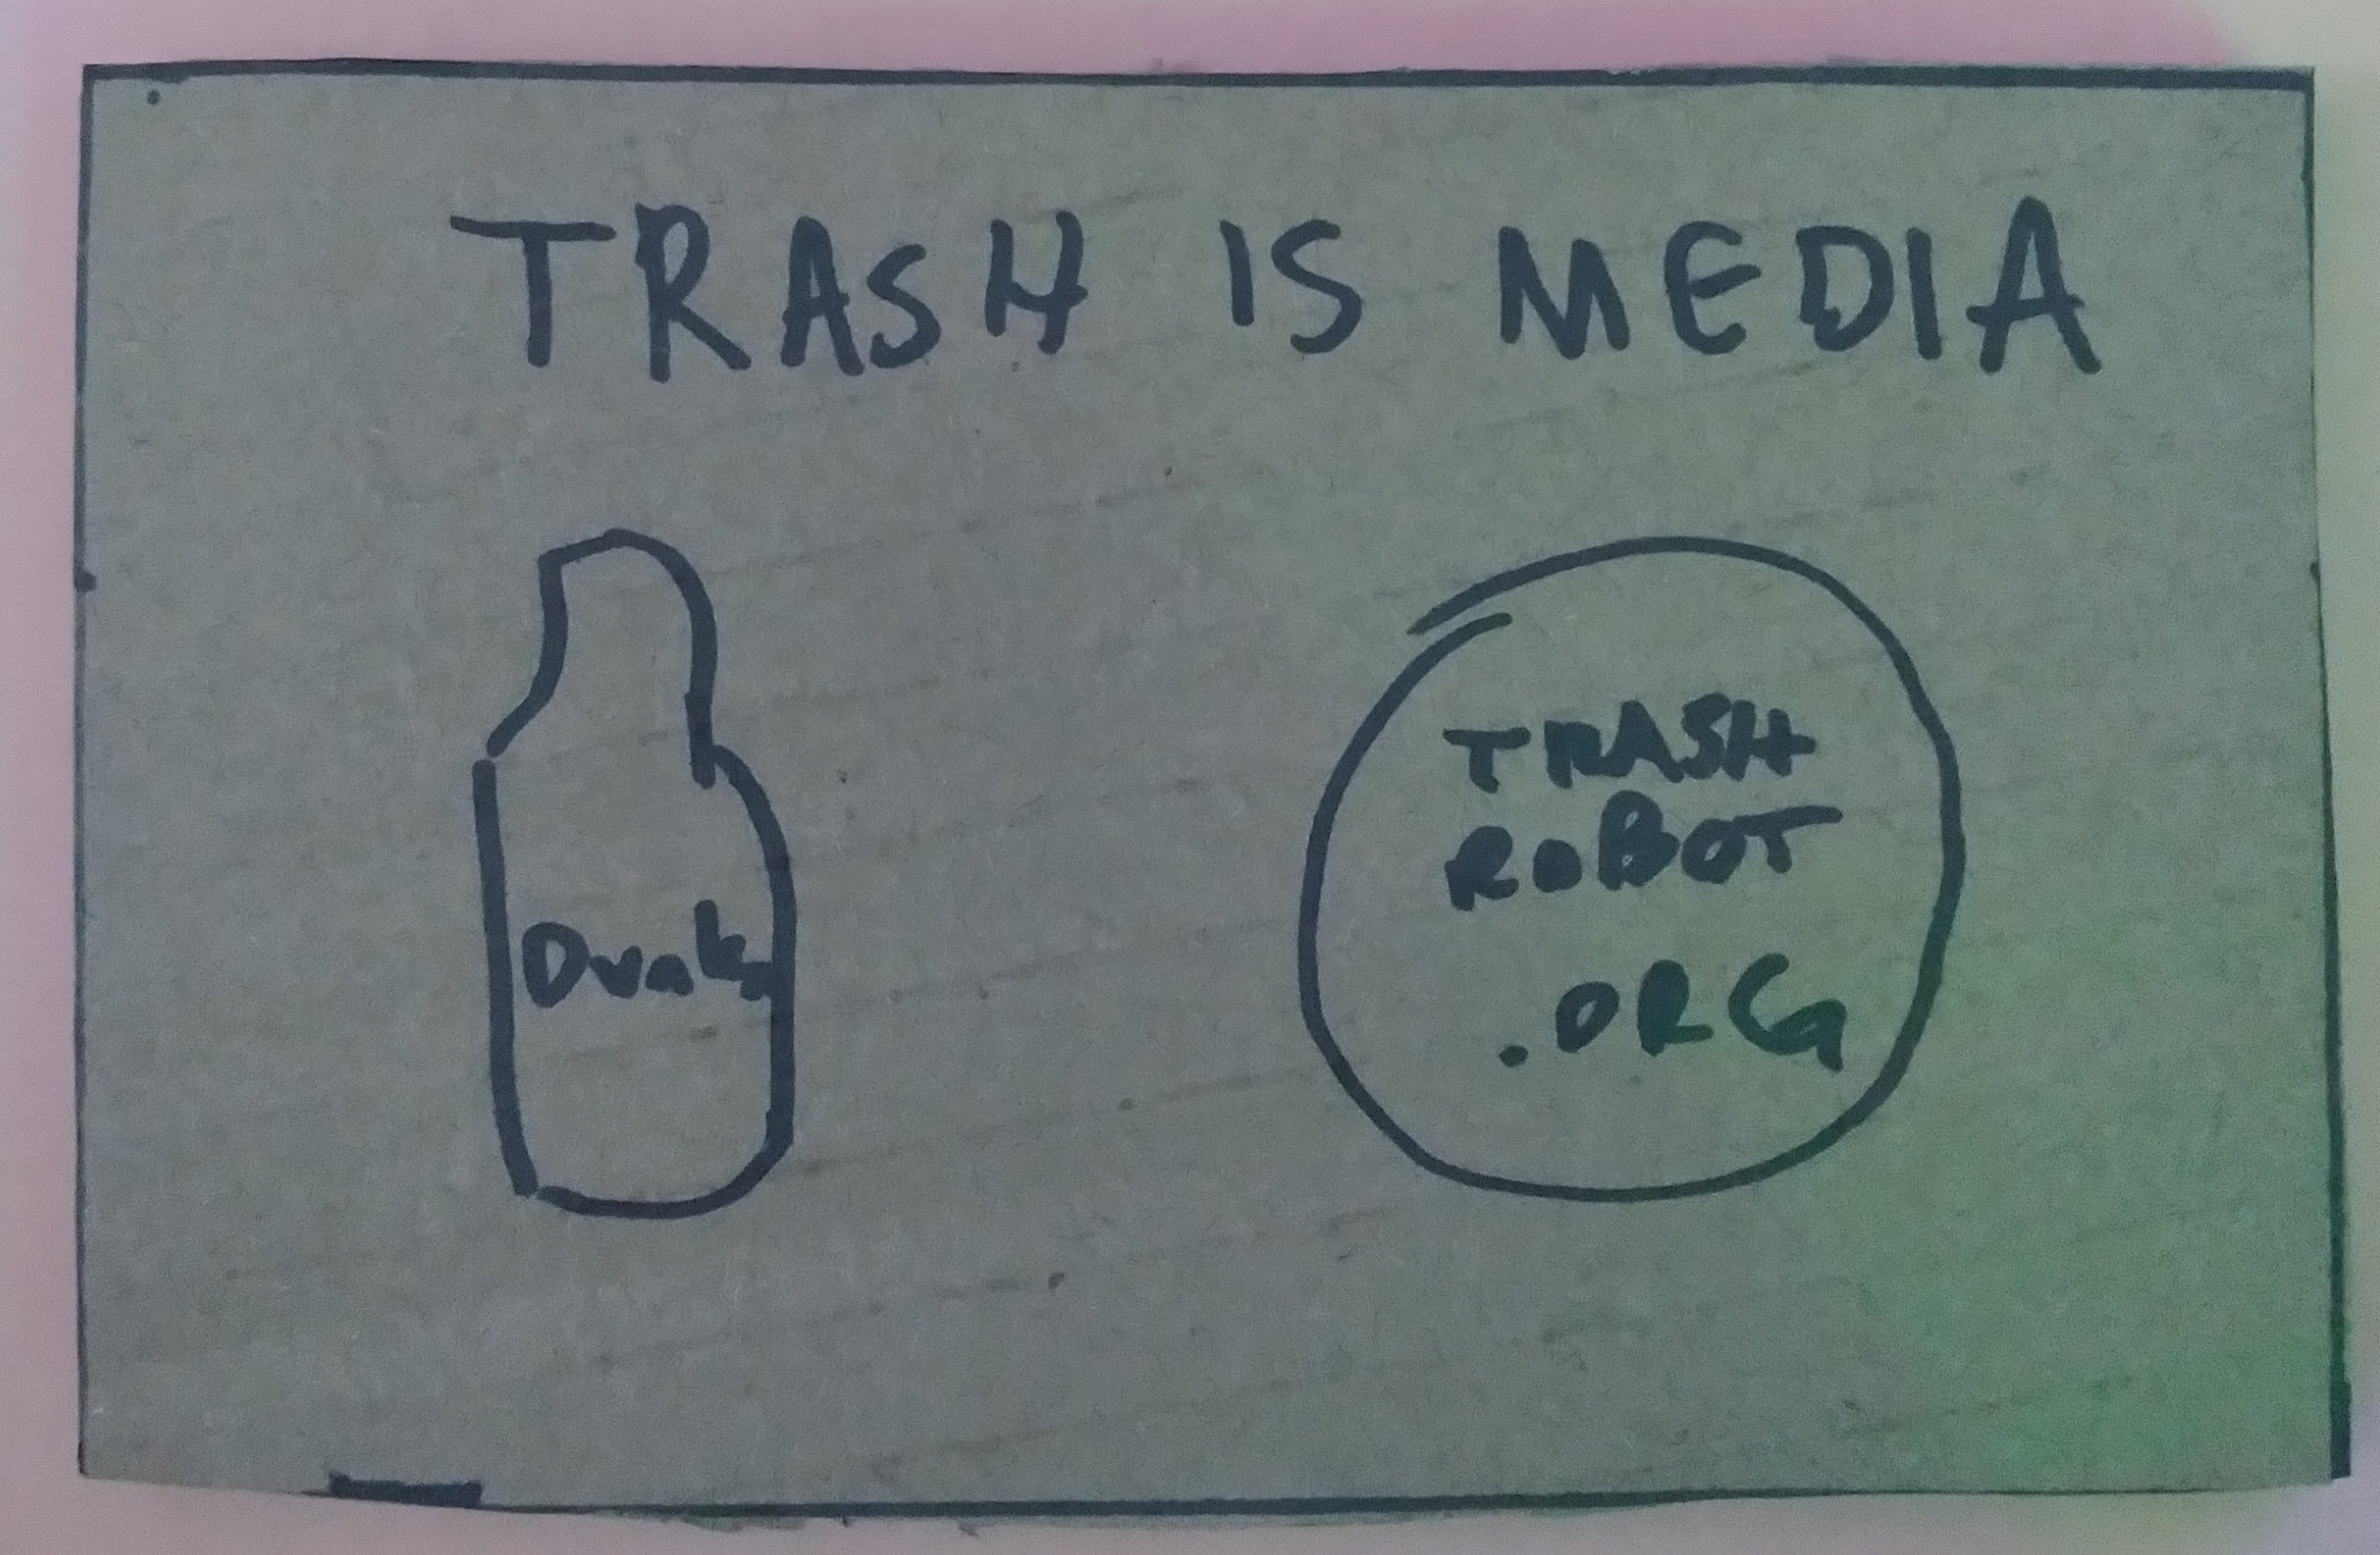 TRASH IS MEDIA
Dunks
TRASH
ROBOT
.ORG